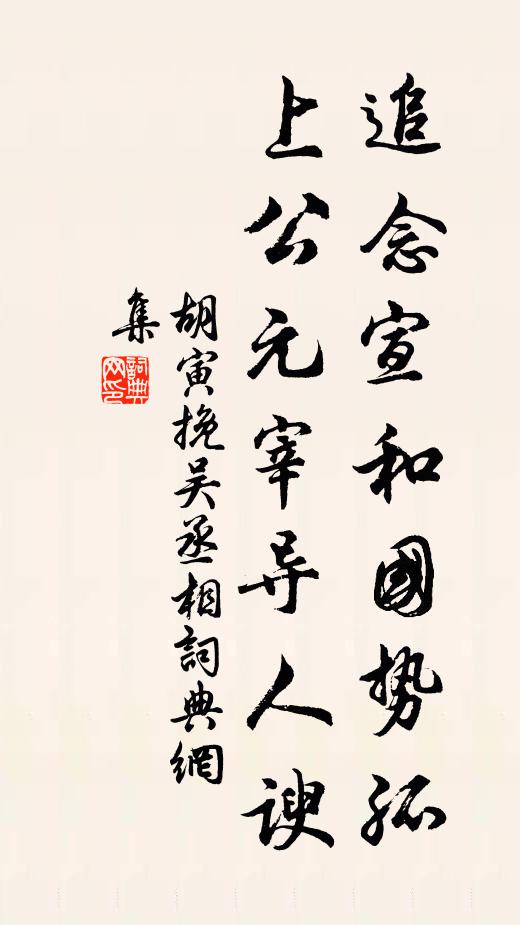 追念宣和國势孤
上公元宰导人谀
胡寅挽吴丞相詞典網
集
詞典网印